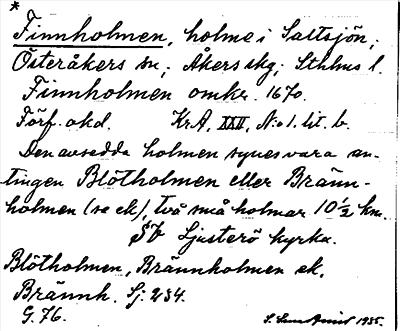 *
Finnholmen, holme i Saltsjön;
Österåkers sn; Åkers skg; Sthlms l.
Finnholmen omkr. 1670.
Förf. okd. KrA, XXII, N:o 1. lit. b.
Den avsedda holmen synes vara an-
tingen Blötholmen eller Bränn-
holmen (se ek), två små holmar 10 1/2 km.
SV Ljusterö kyrka.
Blötholmen, Brännholmen ek.
Brännh. Sj: 234.
G. 76. 1935.